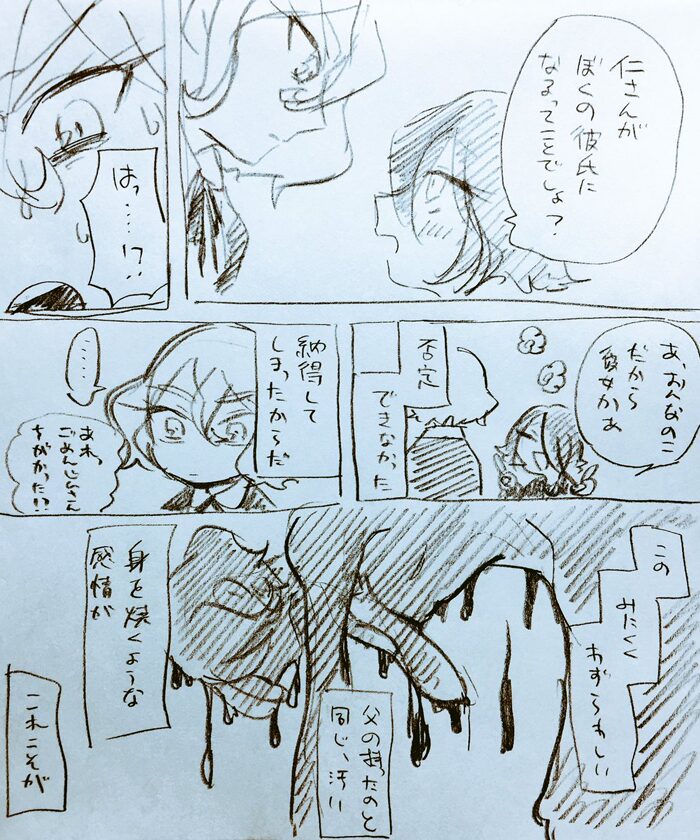 仁さんが
ぼくの彼氏に
なるってことでしょ?
はっ……!?
あ、おんなのこ
だから
彼女かぁ
否定
できなかった
納得して
しまったからだ
……
あれっ
ごめんじんさん
ちがかった!?
この
みにくく
わずらわしい
父の持ったのと
同じ、汚い
身を焼くような
感情が
これこそが